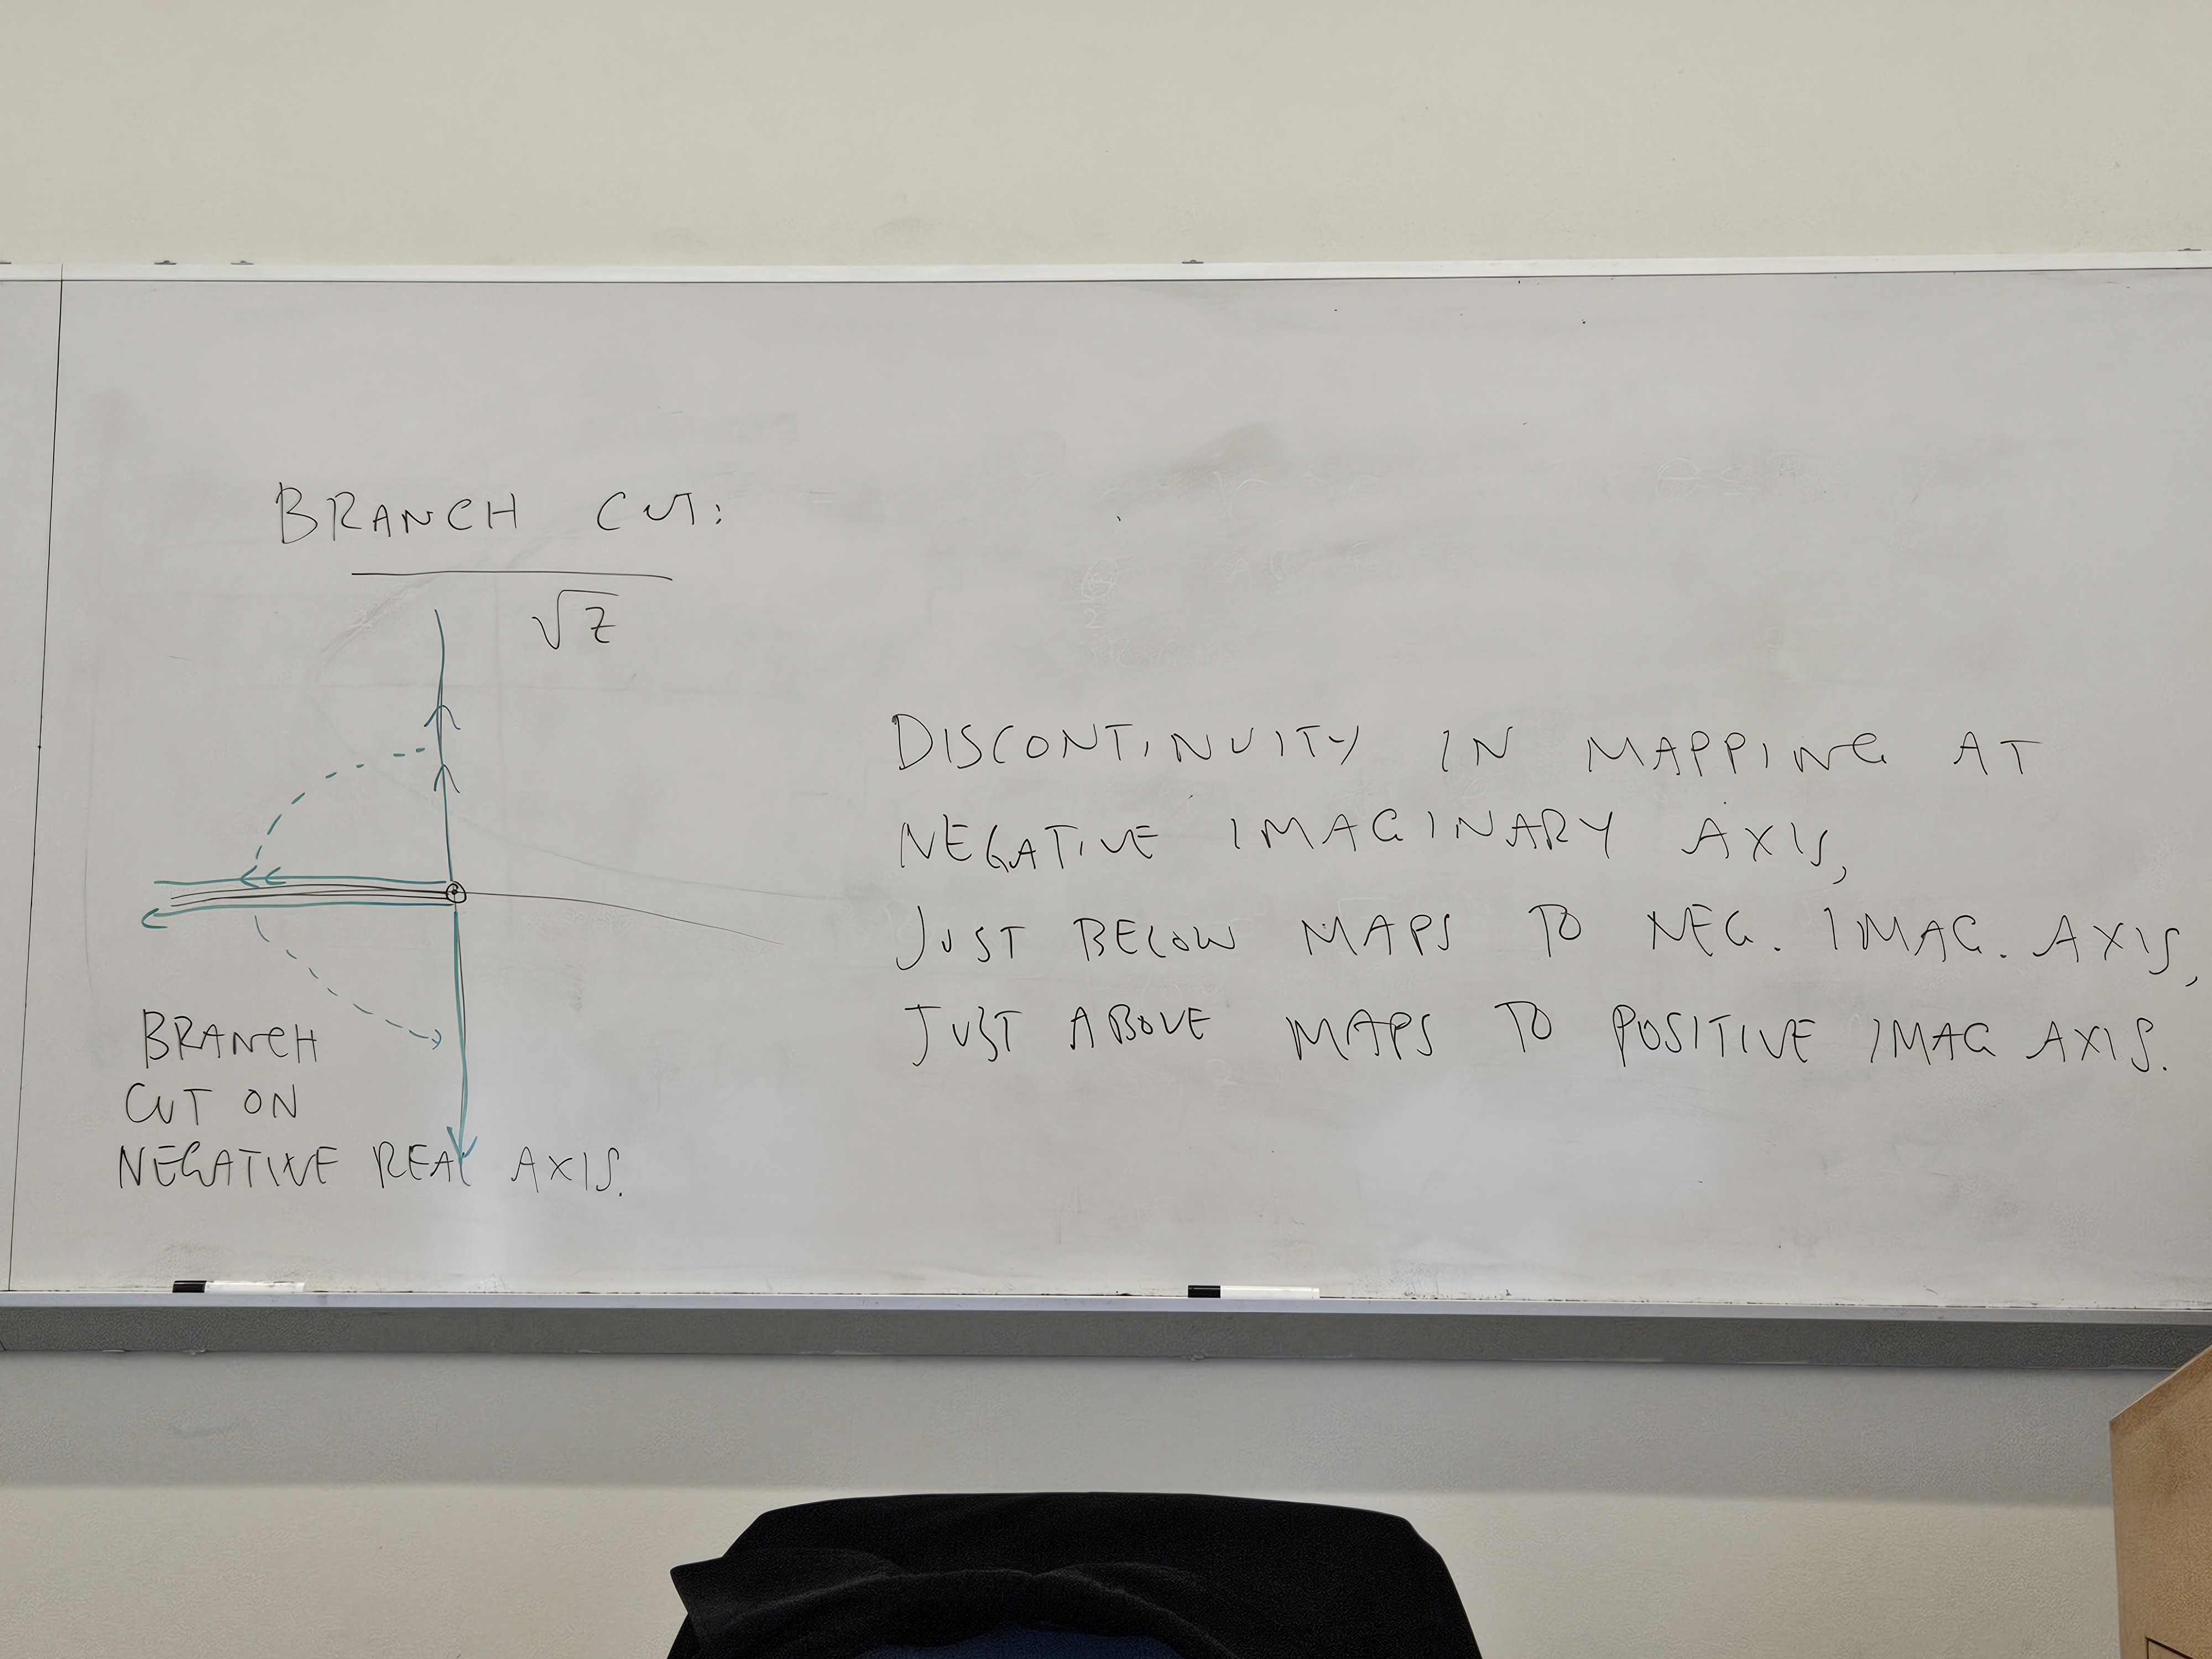 BRANCH CUT:
√z
DISCONTINUITY IN MAPPING AT
NEGATIVE IMAGINARY AXIS,
JUST BELOW MAPS TO NEG. IMAG. AXIS,
JUST ABOVE MAPS TO POSITIVE IMAG AXIS.
BRANCH
CUT ON
NEGATIVE REAL AXIS.